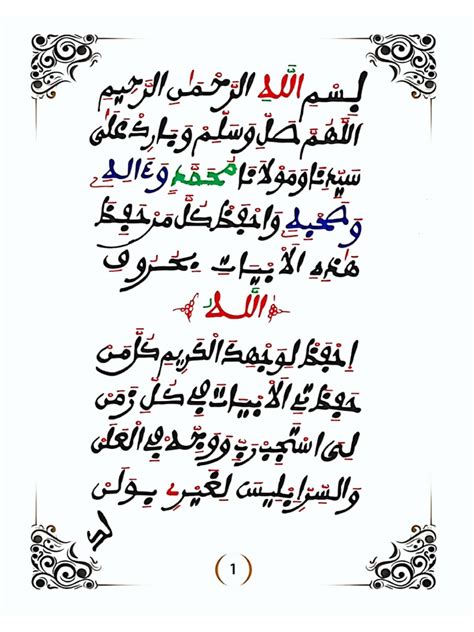 بِسْمِ اللَّهِ الرَّحْمَٰنِ الرَّحِيمِ
اللَّهُمَّ صَلِّ وَسَلِّمْ وَبَارِكْ عَلَىٰ
سَيِّدِنَا وَمَوْلَانَا مُحَمَّدٍ وَءَالِهِ
وَصَحْبِهِ وَاحْفَظْ كُلَّ مَنْ حَفِظَ
هَٰذِهِ الْأَبْيَاتَ بِحُرُوفِ
اللَّهِ
اِحْفَظْ لِوَجْهِكَ الْكَرِيمِ كُلَّ مَنْ
حَفِظَ تِي الْأَبْيَاتَ فِي كُلِّ زَمَنْ
لِيَ اسْتَجِبْ رَبِّ وَوَجِّهْ فِي الْعَلَنْ
وَالسِّرِّ إِبْلِيسَ لِغَيْرِي
1